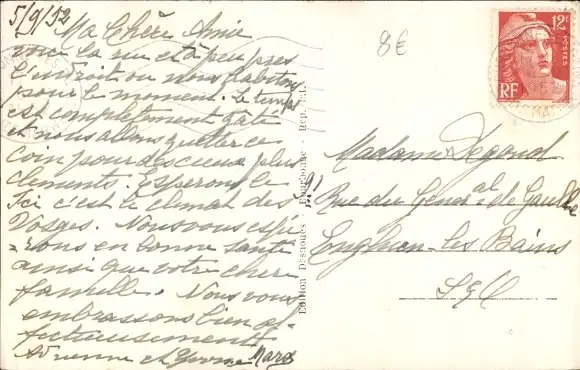 5/9/52
Ma Chère Amie
voici la rue et à peu pres
l'endroit ou nous habitons
pour le moment. Le temps
est completement gaté
et nous allons quitter ce
coin pour des cieux plus
clements. Esperons le
Ici c'est le climat des
Vosges. Nous vous espé
-rons en bonne santé
ainsi que votre chere
famille. Nous vous
embrassons bien af-
fectueusement
Adrienne et Yvonne
8€
12F
POSTES
RF
Edition Desnoues - Bourbonne - Rep. Int.
Madame Degond
91
Rue du Général de Gaulle
Enghien-les-Bains
S&O